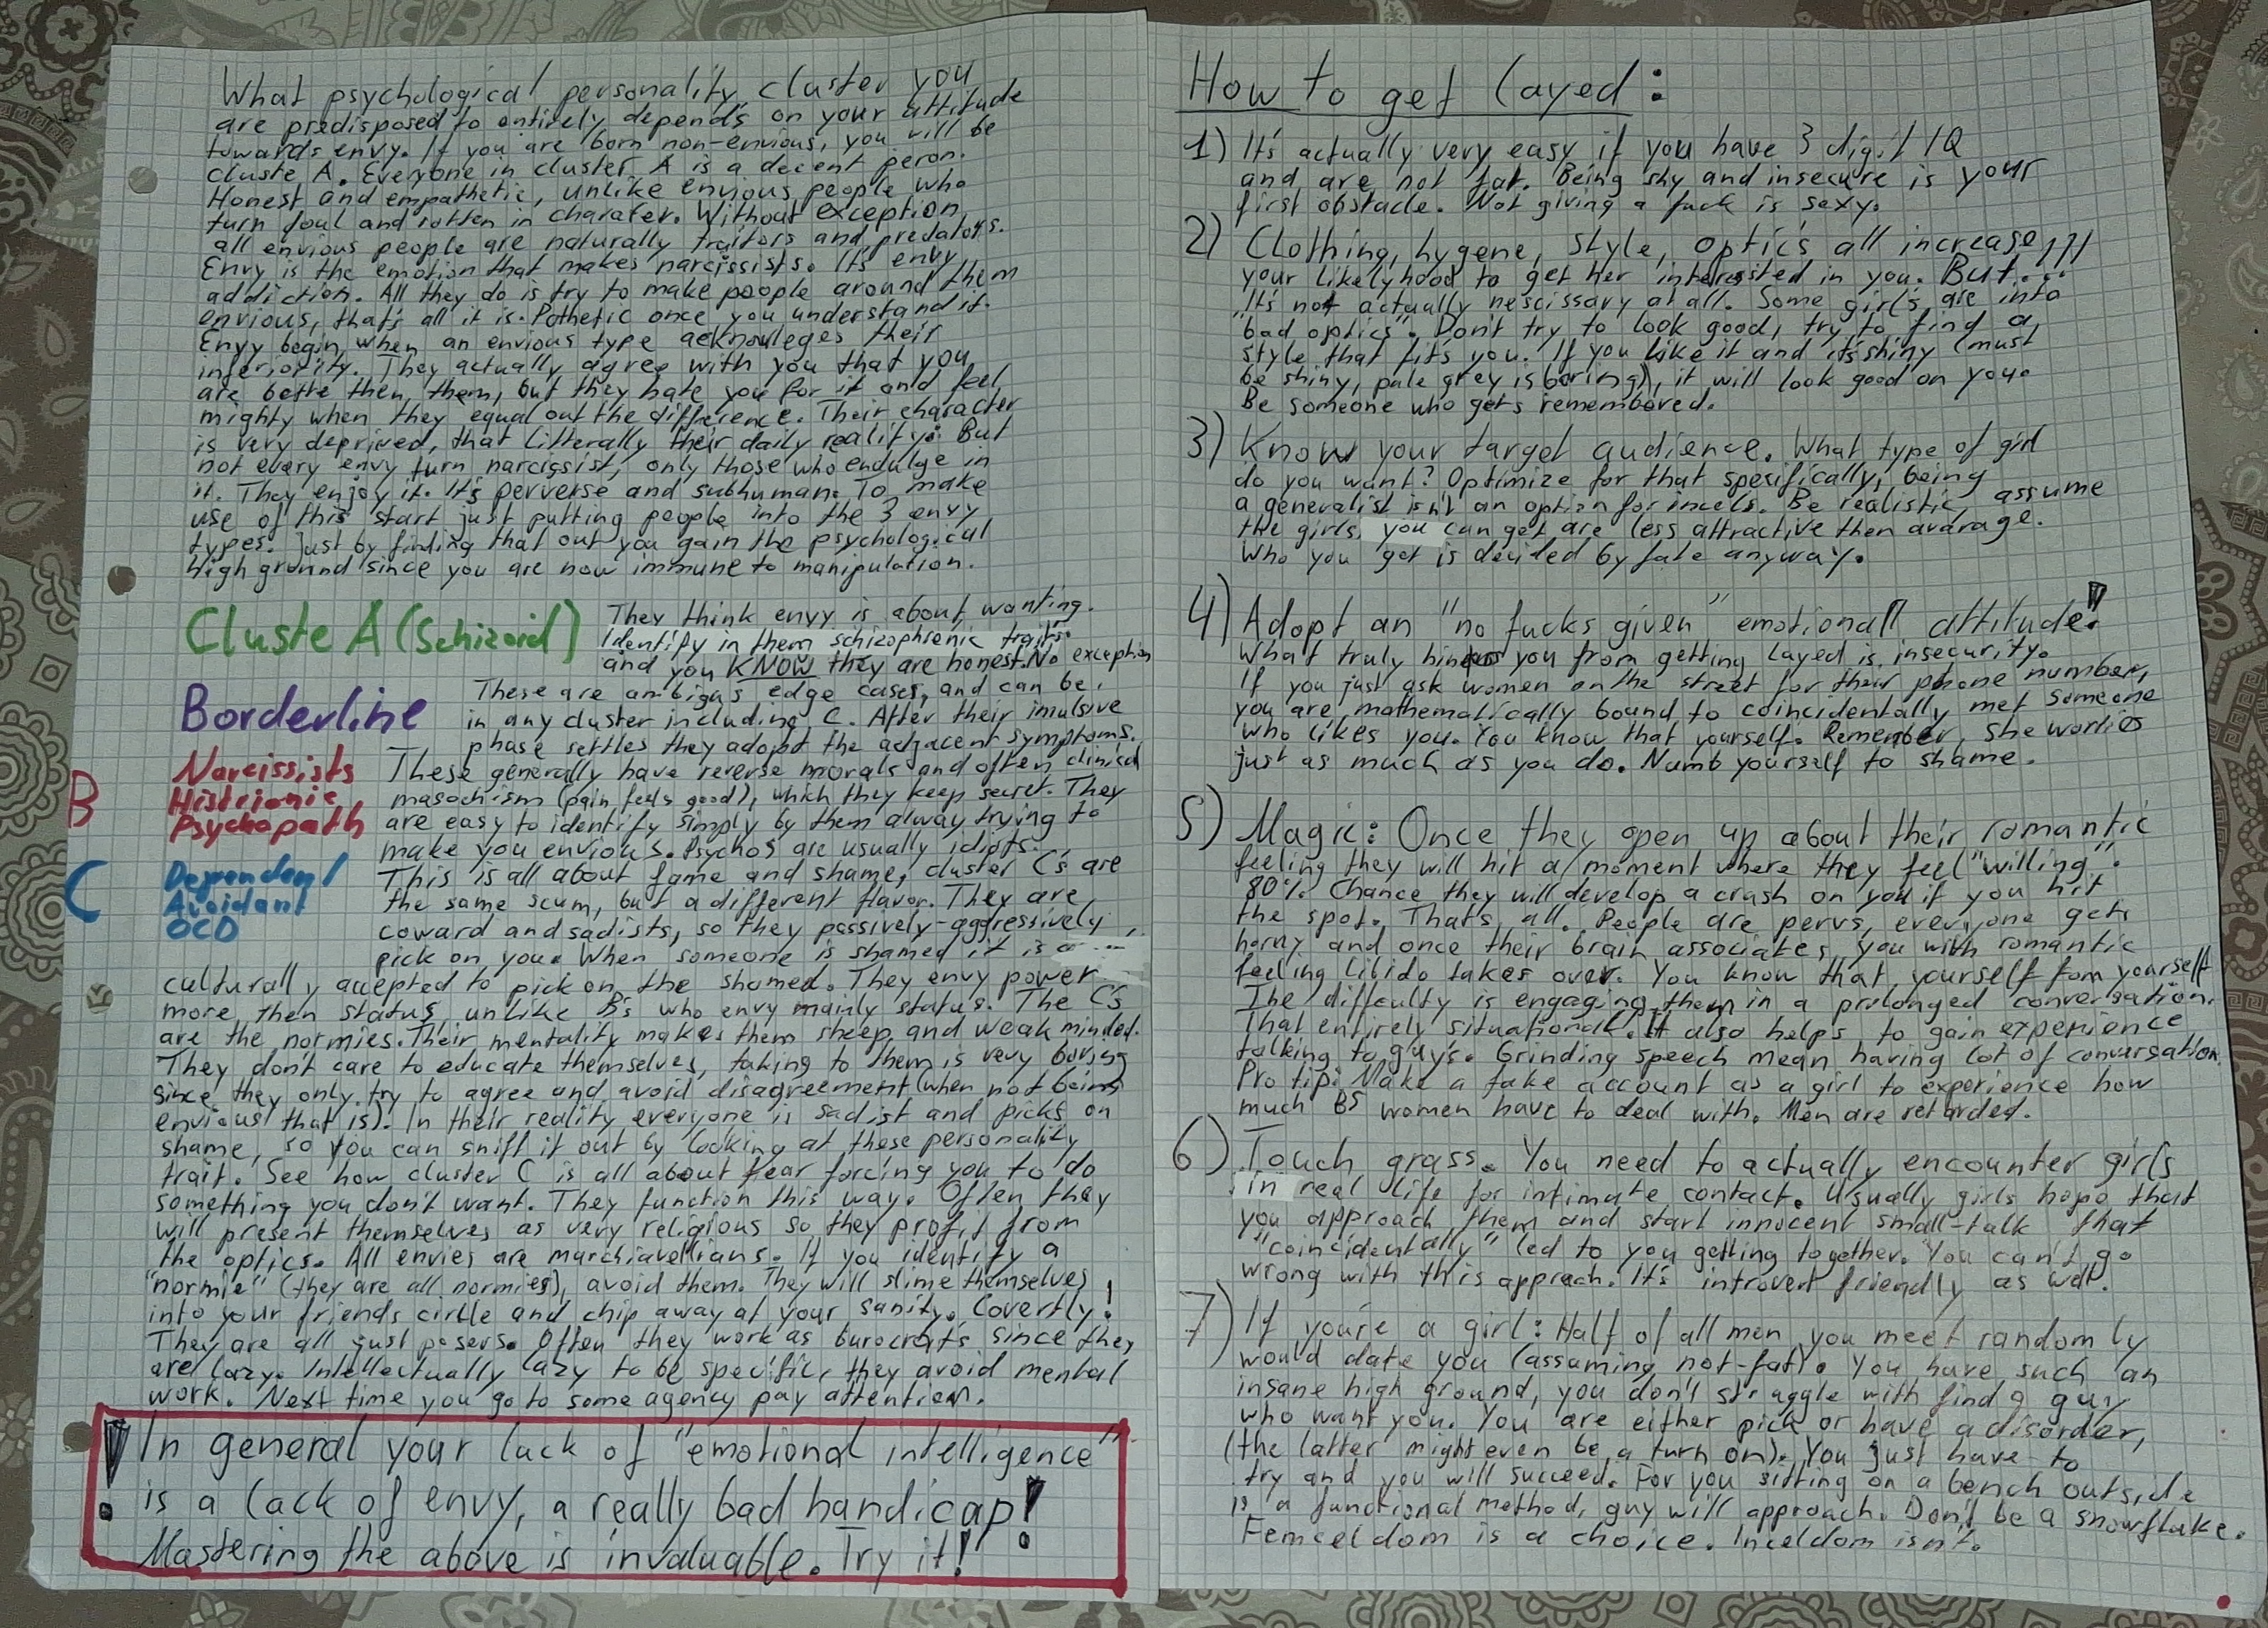 What psychological personality cluster you
are predisposed to entirely depends on your attitude
towards envy. If you are born non-envious, you will be
cluste A. Everyone in cluster A is a decent peron.
Honest and empathetic, unlike envious people who
turn foul and rotten in charater. Without exception
all envious people are naturally traitors and predators.
Envy is the emotion that makes narcissists. It's envy
addiction. All they do is try to make people around them
envious, that's all it is. Pathetic once you understand it.
Envy begin when an envious type acknowleges their
inferiority. They actually agree with you that you
are bette then them, but they hate you for it and feel
mighty when they equal out the difference. Their character
is very deprived, that litterally their daily reality. But
not every envy turn narcissist, only those who endulge in
it. They enjoy it. It's perverse and subhuman. To make
use of this start just putting people into the 3 envy
types. Just by finding that out you gain the psychological
High ground since you are now immune to manipulation.
Cluste A (Schizoid)
They think envy is about wanting.
Identify in them schizophrenic traits
and you KNOW they are honest. No exception
Borderline
These are ambigus edge cases, and can be
in any cluster including C. After their imulsive
phase settles they adopt the adjacent symptoms.
B
Narcissists
Histrionic
Psychopath
These generally have reverse morals and often clinical
masochism (pain feels good), which they keep secret. They
are easy to identify simply by them alway trying to
make you envious. Psychos are usually idiots.
C
Dependent
Avoidant
OCD
This is all about fame and shame, cluster C's are
the same scum, but a different flavor. They are
coward and sadists, so they passively-aggressively
pick on you. When someone is shamed it is
culturally accepted to pick on the shamed. They envy power
more then status, unlike B's who envy mainly status. The C's
are the normies. Their mentality makes them sheep and weak minded.
They don't care to educate themselves, taking to them is very boring
since they only try to agree and avoid disagreement (when not being
envious that is). In their reality everyone is sadist and picks on
shame, so you can sniff it out by looking at these personality
trait. See how cluster C is all about fear forcing you to do
something you don't want. They function this way. Often they
will present themselves as very religious so they profit from
the optics. All envies are marchiavellians. If you identify a
"normie" (they are all normies), avoid them. They will slime themselves
into your friends circle and chip away at your sanity. Covertly!
They are all just posers. Often they work as burocrats since they
are lazy. Intellectually lazy to be specific, they avoid mental
work. Next time you go to some agency pay attention.
! In general your lack of "emotional intelligence"
is a lack of envy, a really bad handicap!
Mastering the above is invaluable. Try it!
How to get layed:
1) It's actually very easy if you have 3 digit IQ
and are not fat. Being shy and insecure is your
first obstacle. Not giving a fuck is sexy.
2) Clothing, hygene, style, optics all increase
your likelyhood to get her interested in you. But...
It's not actually nescissary at all. Some girl's are into
"bad optics". Don't try to look good, try to find a
style that fits you. If you like it and it's shiny (must
be shiny, pale grey is boring), it will look good on you.
Be someone who gets remembered.
3) Know your target audience. What type of girl
do you want? Optimize for that spesifically, being
a generalist isn't an option for incels. Be realistic, assume
the girls you can get are less attractive then avarage.
Who you get is decided by fate anyway.
4) Adopt an "no fucks given" emotionall attitude!
What truly hinders you from getting layed is insecurity.
If you just ask women on the street for their phone number,
you are mathematically bound to coincidentally met someone
who likes you. You know that yourself. Remember, she worries
just as much as you do. Numb yourself to shame.
5) Magic: Once they open up about their romantic
feeling they will hit a moment where they feel "willing".
80% Chance they will develop a crash on you if you hit
the spot. That's all. People are pervs, everyone gets
horny and once their brain associates you with romantic
feeling libido takes over. You know that yourself fom yourself
The difficulty is engaging them in a prolonged conversation.
That entirely situational. It also helps to gain experience
talking to guy's. Grinding speech mean having lot of conversation.
Pro tip: Make a fake account as a girl to experience how
much BS women have to deal with. Men are retarded.
6) Touch grass. You need to actually encounter girls
in real life for intimate contact. Usually girls hope that
you approach them and start innocent small-talk that
"coincidentally" led to you getting together. You can't go
wrong with this apprach. It's introvert friendly as well.
7) If you're a girl: Half of all men you meet randomly
would date you (assuming not-fat). You have such an
insane high ground, you don't struggle with find a guy
who want you. You are either pick or have a disorder,
(the latter might even be a turn on). You just have to
try and you will succeed. For you sitting on a bench outside
is a functional method, guy will approach. Don't be a snowflake.
Femceldom is a choice. Inceldom isn't.